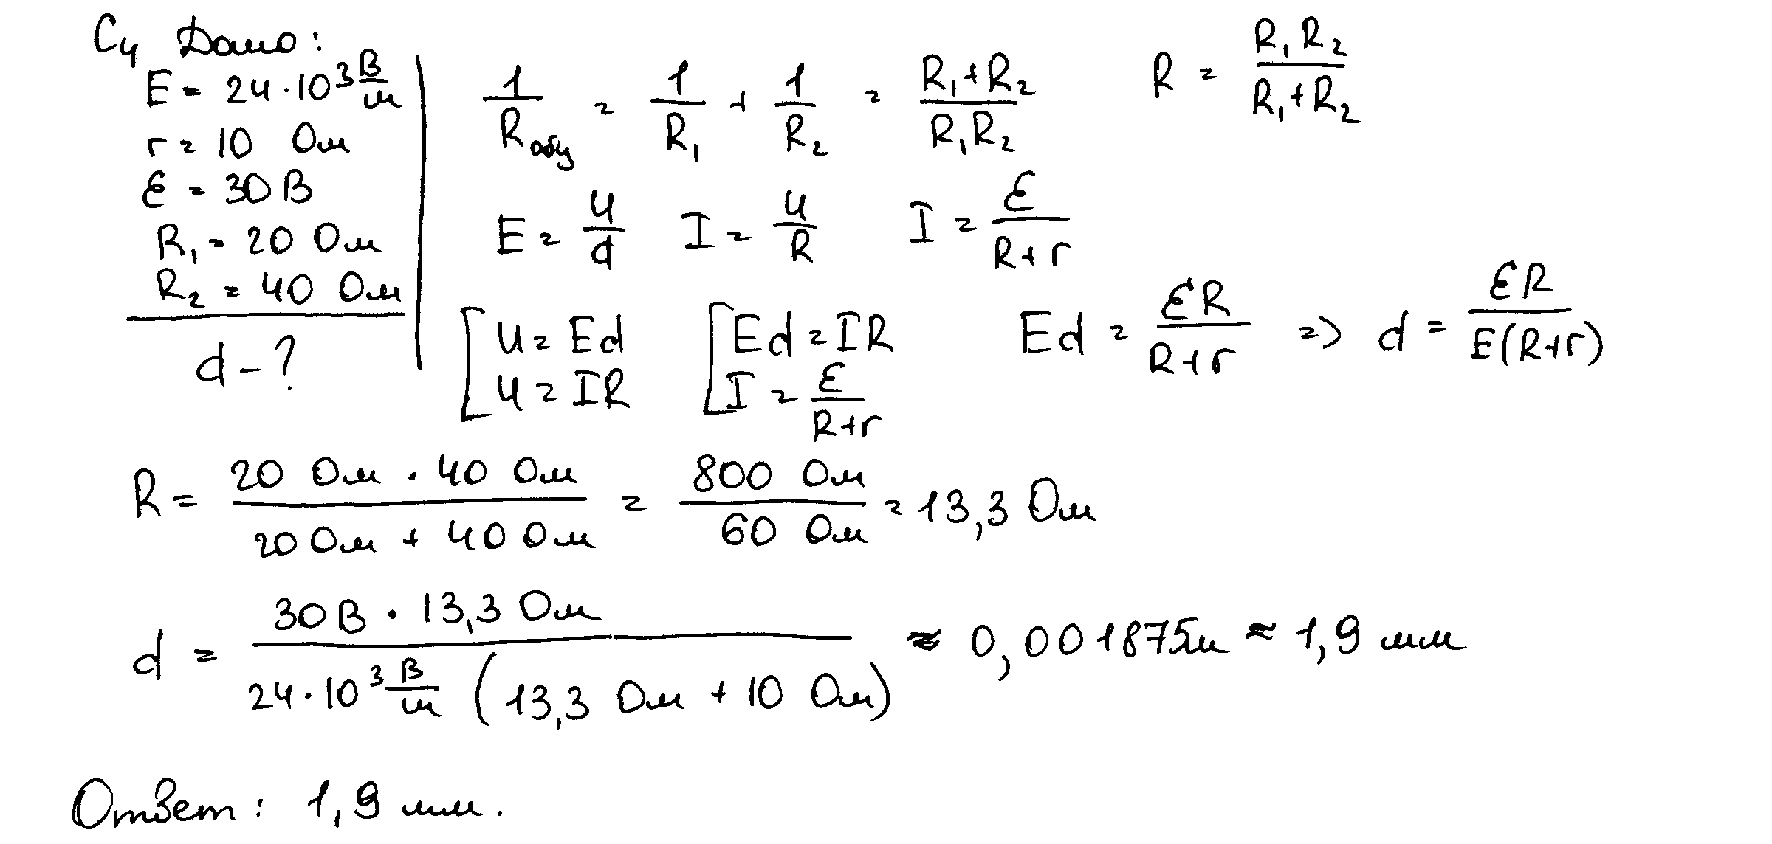 C₄ Дано:
E = 24·10³ В/м
r = 10 Ом
ℰ = 30 В
R₁ = 20 Ом
R₂ = 40 Ом
d - ?
1/Rобщ = 1/R₁ + 1/R₂ = (R₁+R₂)/(R₁R₂) R = (R₁R₂)/(R₁+R₂)
E = U/d I = U/R I = ℰ/(R+r)
[U = Ed [Ed = IR Ed = ℰR/(R+r) => d = ℰR/(E(R+r))
[U = IR [I = ℰ/(R+r)
R = (20 Ом · 40 Ом)/(20 Ом + 40 Ом) = (800 Ом)/(60 Ом) = 13,3 Ом
d = (30 В · 13,3 Ом)/(24·10³ В/м (13,3 Ом + 10 Ом)) ≈ 0,001875м ≈ 1,9 мм
Ответ: 1,9 мм.